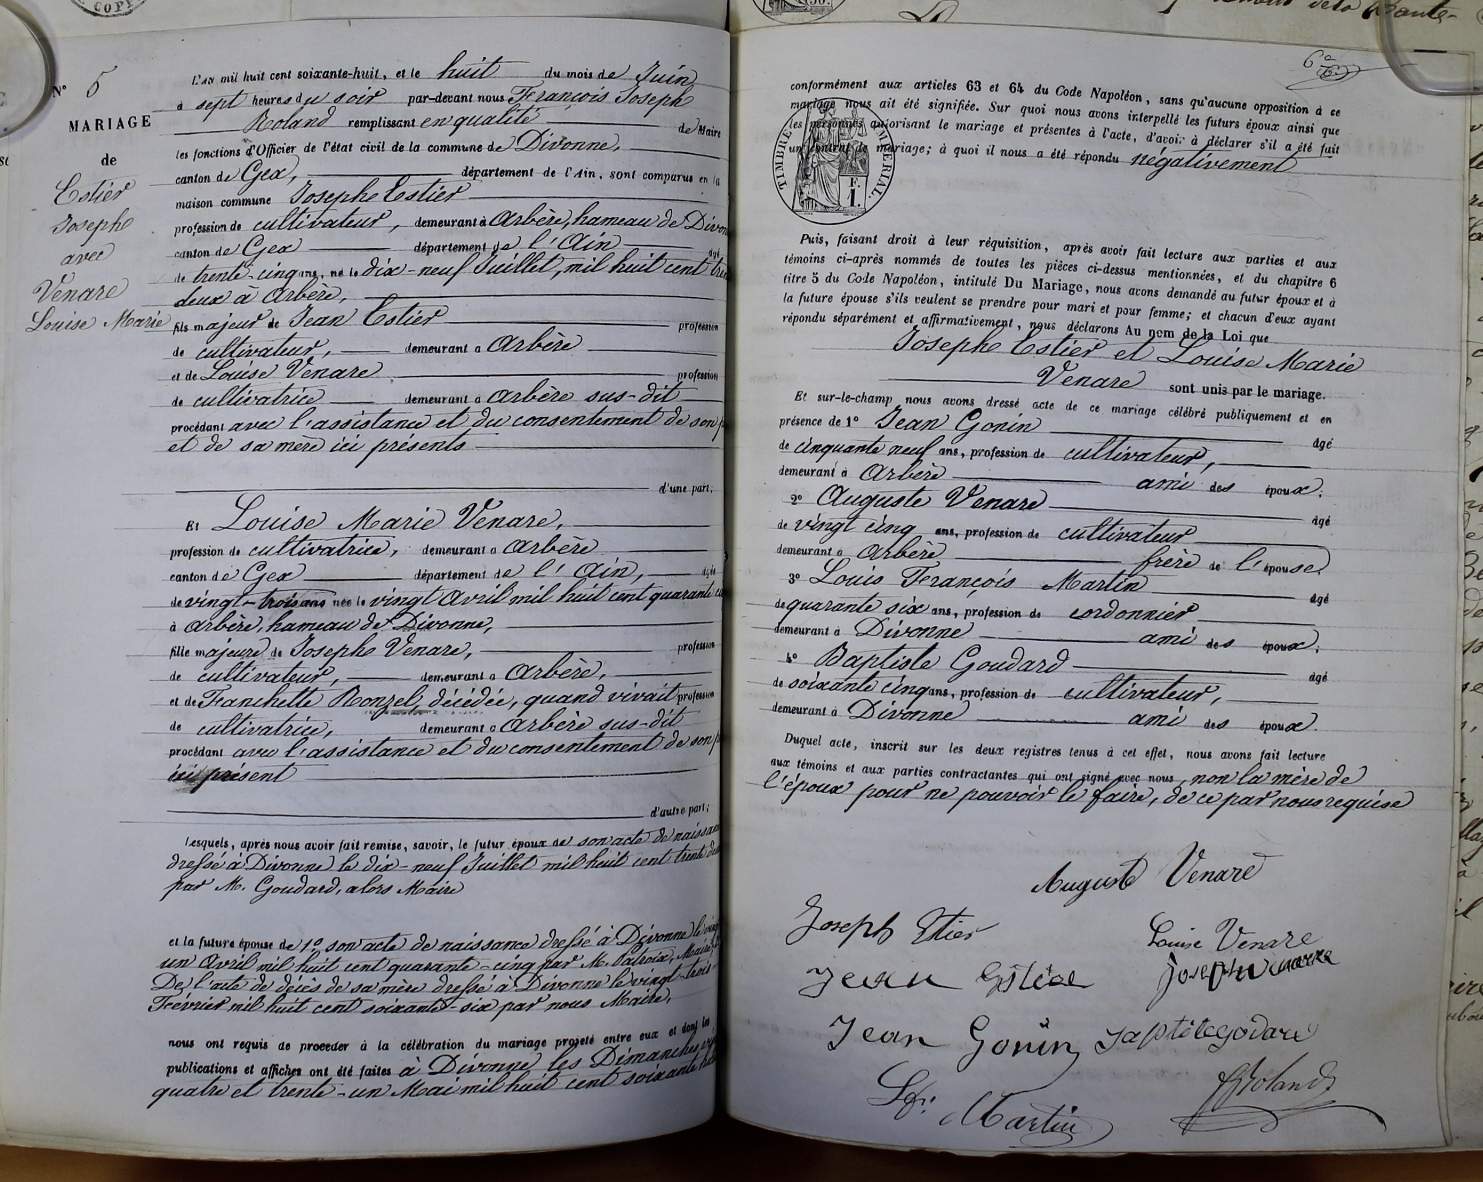 COPY
N° 5
MARIAGE
de
Estier
Josephe
avec
Venare
Louise Marie
L'an mil huit cent soixante-huit, et le huit du mois de Juin
à sept heures du soir par-devant nous François Joseph
Roland remplissant en qualité de Maire
les fonctions d'Officier de l'état civil de la commune de Divonne,
canton de Gex, département de l'Ain, sont comparus en la
maison commune Josephe Estier
profession de cultivateur, demeurant à Arbère, hameau de
canton de Gex département de l'Ain âgé
de trente-cinq ans, né le dix-neuf Juillet, mil huit cent
deux à Arbère,
fils majeur de Jean Estier profession
de cultivateur, demeurant à Arbère
et de Louise Venare profession
de cultivatrice demeurant à Arbère sus-dit
procédant avec l'assistance et du consentement de son
et de sa mère ici présents
d'une part,
Et Louise Marie Venare,
profession de cultivatrice, demeurant à Arbère
canton de Gex département de l'Ain, âgée
de vingt-trois ans née le vingt Avril mil huit cent quarante
à Arbère, hameau de Divonne,
fille majeure de Josephe Venare, profession
de cultivateur, demeurant à Arbère,
et de Franchette Ronzel, décédée, quand vivait profession
de cultivatrice, demeurant à Arbère sus-dit
procédant avec l'assistance et du consentement de son
ici présent
d'autre part;
Lesquels, après nous avoir fait remise, savoir, le futur époux de son acte de
dressé à Divonne le dix-neuf Juillet mil huit cent trente
par M. Goudard, alors Maire
et la future épouse de 1° son acte de naissance dressé à Divonne le
un Avril mil huit cent quarante-cinq par M. Patroix, Maire,
De l'acte de décès de sa mère dressé à Divonne le vingt-trois
Février mil huit cent soixante-six par nous Maire,
nous ont requis de procéder à la célébration du mariage projeté entre eux et dont les
publications et affiches ont été faites à Divonne les Dimanches
quatre et trente-un Mai mil huit cent soixante
TIMBRE IMPÉRIAL
F.
1.
conformément aux articles 63 et 64 du Code Napoléon, sans qu'aucune opposition à ce
mariage nous ait été signifiée. Sur quoi nous avons interpellé les futurs époux ainsi que
les personnes autorisant le mariage et présentes à l'acte, d'avoir à déclarer s'il a été fait
un contrat de mariage; à quoi il nous a été répondu négativement
Puis, faisant droit à leur réquisition, après avoir fait lecture aux parties et aux
témoins ci-après nommés de toutes les pièces ci-dessus mentionnées, et du chapitre 6
titre 5 du Code Napoléon, intitulé Du Mariage, nous avons demandé au futur époux et à
la future épouse s'ils veulent se prendre pour mari et pour femme; et chacun d'eux ayant
répondu séparément et affirmativement, nous déclarons Au nom de la Loi que
Josephe Estier et Louise Marie
Venare sont unis par le mariage.
Et sur-le-champ nous avons dressé acte de ce mariage célébré publiquement et en
présence de 1° Jean Gonin âgé
de cinquante neuf ans, profession de cultivateur,
demeurant à Arbère ami des époux;
2° Auguste Venare âgé
de vingt cinq ans, profession de cultivateur
demeurant à Arbère frère de l'épouse;
3° Louis François Martin âgé
de quarante six ans, profession de cordonnier
demeurant à Divonne ami des époux;
4° Baptiste Goudard âgé
de soixante cinq ans, profession de cultivateur,
demeurant à Divonne ami des époux.
Duquel acte, inscrit sur les deux registres tenus à cet effet, nous avons fait lecture
aux témoins et aux parties contractantes qui ont signé avec nous, non la mère de
l'époux pour ne pouvoir le faire, de ce par nous requise
Auguste Venare
Joseph Etier Louise Venare
Jean
Jean Gonin
Martin Roland